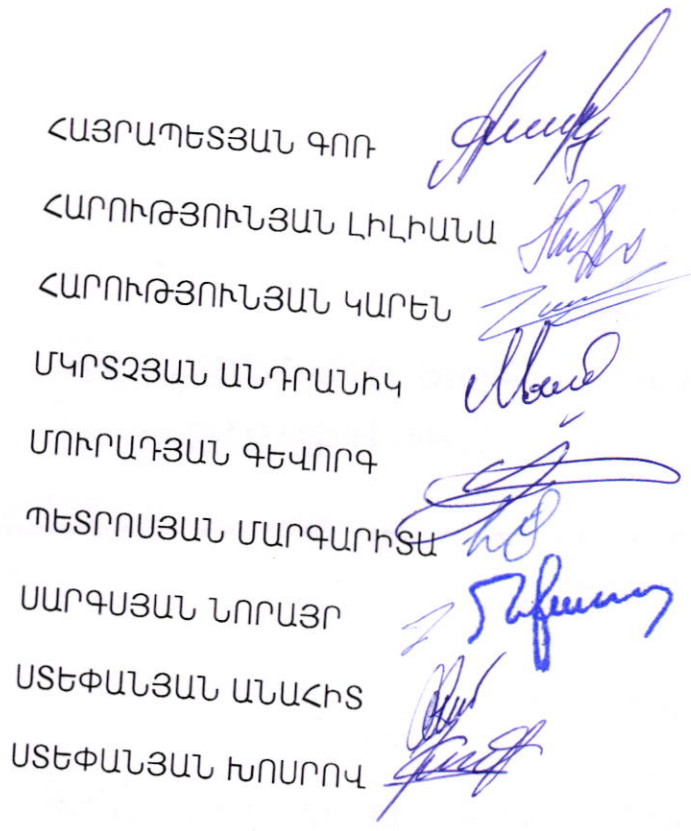 ՀԱՅՐԱՊԵՏՅԱՆ ԳՈՌ
ՀԱՐՈՒԹՅՈՒՆՅԱՆ ԼԻԼԻԱՆԱ
ՀԱՐՈՒԹՅՈՒՆՅԱՆ ԿԱՐԵՆ
ՄԿՐՏՉՅԱՆ ԱՆԴՐԱՆԻԿ
ՄՈՒՐԱԴՅԱՆ ԳԵՎՈՐԳ
ՊԵՏՐՈՍՅԱՆ ՄԱՐԳԱՐԻՏԱ
ՍԱՐԳՍՅԱՆ ՆՈՐԱՅՐ
ՍՏԵՓԱՆՅԱՆ ԱՆԱՀԻՏ
ՍՏԵՓԱՆՅԱՆ ԽՈՍՐՈՎ